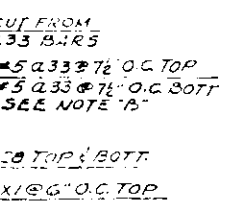 CUT FROM
33 BARS
#5 a33 @ 7½" O.C. TOP
#5 a33 @ 7½" O.C. BOTT
SEE NOTE "B"
TOP & BOTT.
X1 @ 6" O.C. TOP